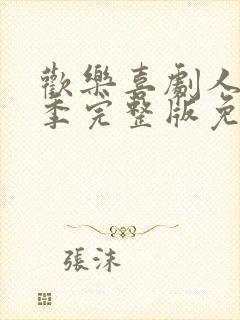 歡樂喜劇人
季完整版免
張沫